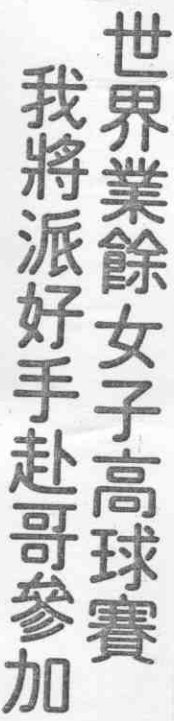 世界業餘女子高球賽
我將派好手赴哥參加